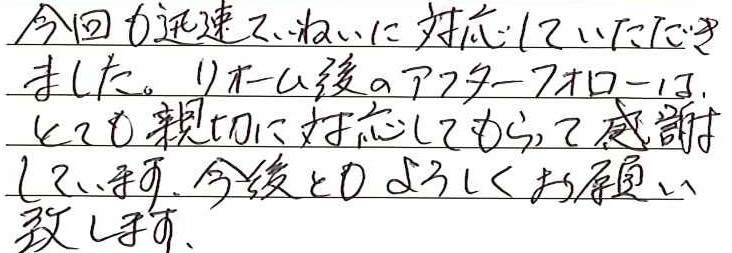 今回も迅速ていねいに対応していただき
ました。リホーム後のアフターフォローは、
とても親切に対応してもらって感謝は
しています。今後ともよろしくお願い
致します、